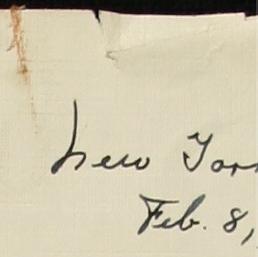 New York
Feb. 8,